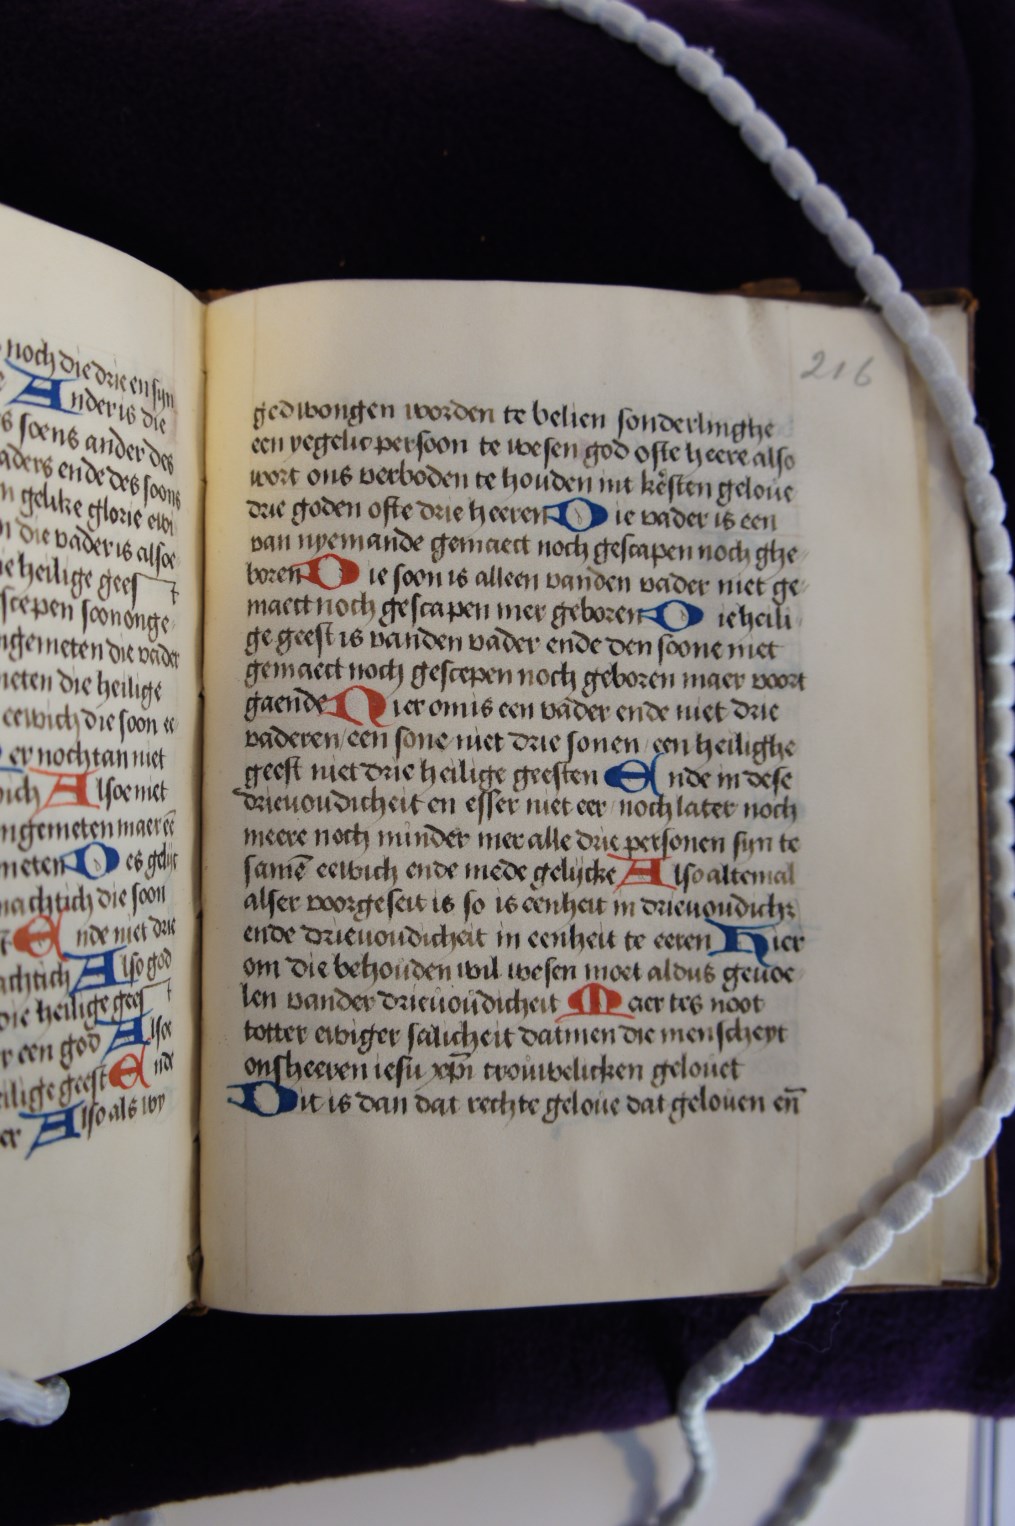 noch die drie en syn
Ander is die
s soens ander des
aders ende des soons
n gelike glorie ewi
n die vader is alsoe
e heilige gees
scepen soon onge
ngemeten die vader
meten die heilige
eewich die soon ee
er nochtan niet
wich Alsoe niet
ngemeten maer eē
meten Des gelijc
machtich die soon
Ende niet drie
achtich Also god
die heilige gees
r een god Alsoe
eilige geest Ende
er Also als wy
216
gedwongen worden te belien sonderlinghe
een yegelic persoon te wesen god ofte heere also
wort ons verboden te houden int kēsten geloue
drie goden ofte drie heeren Die vader is een
van nyemande gemaect noch gescapen noch ghe
boren Die soon is alleen vanden vader niet ge
maect noch gescapen mer geboren Die heili
ge geest is vanden vader ende den soone niet
gemaect noch gescepen noch geboren maer voort
gaende Hier om is een vader ende niet drie
vaderen/een sone/niet drie sonen/een heilighe
geest niet drie heilige geesten Ende in dese
drieuoudicheit en esser niet eer/noch later noch
meere noch minder mer alle drie personen syn te
samē eewich ende mede gelijcke Also altemal
alser voorgeseit is so is eenheit in drieuoudicht
ende drieuoudicheit in eenheit te eeren Hier
om die behouden wil wesen moet aldus geuoe
len vander drieuoudicheit Maer tes noot
totter ewiger salicheit datmen die menscheyt
onsheeren iesu xp̄i trouwelicken gelouet
Dit is dan dat rechte geloue dat gelouen en̄